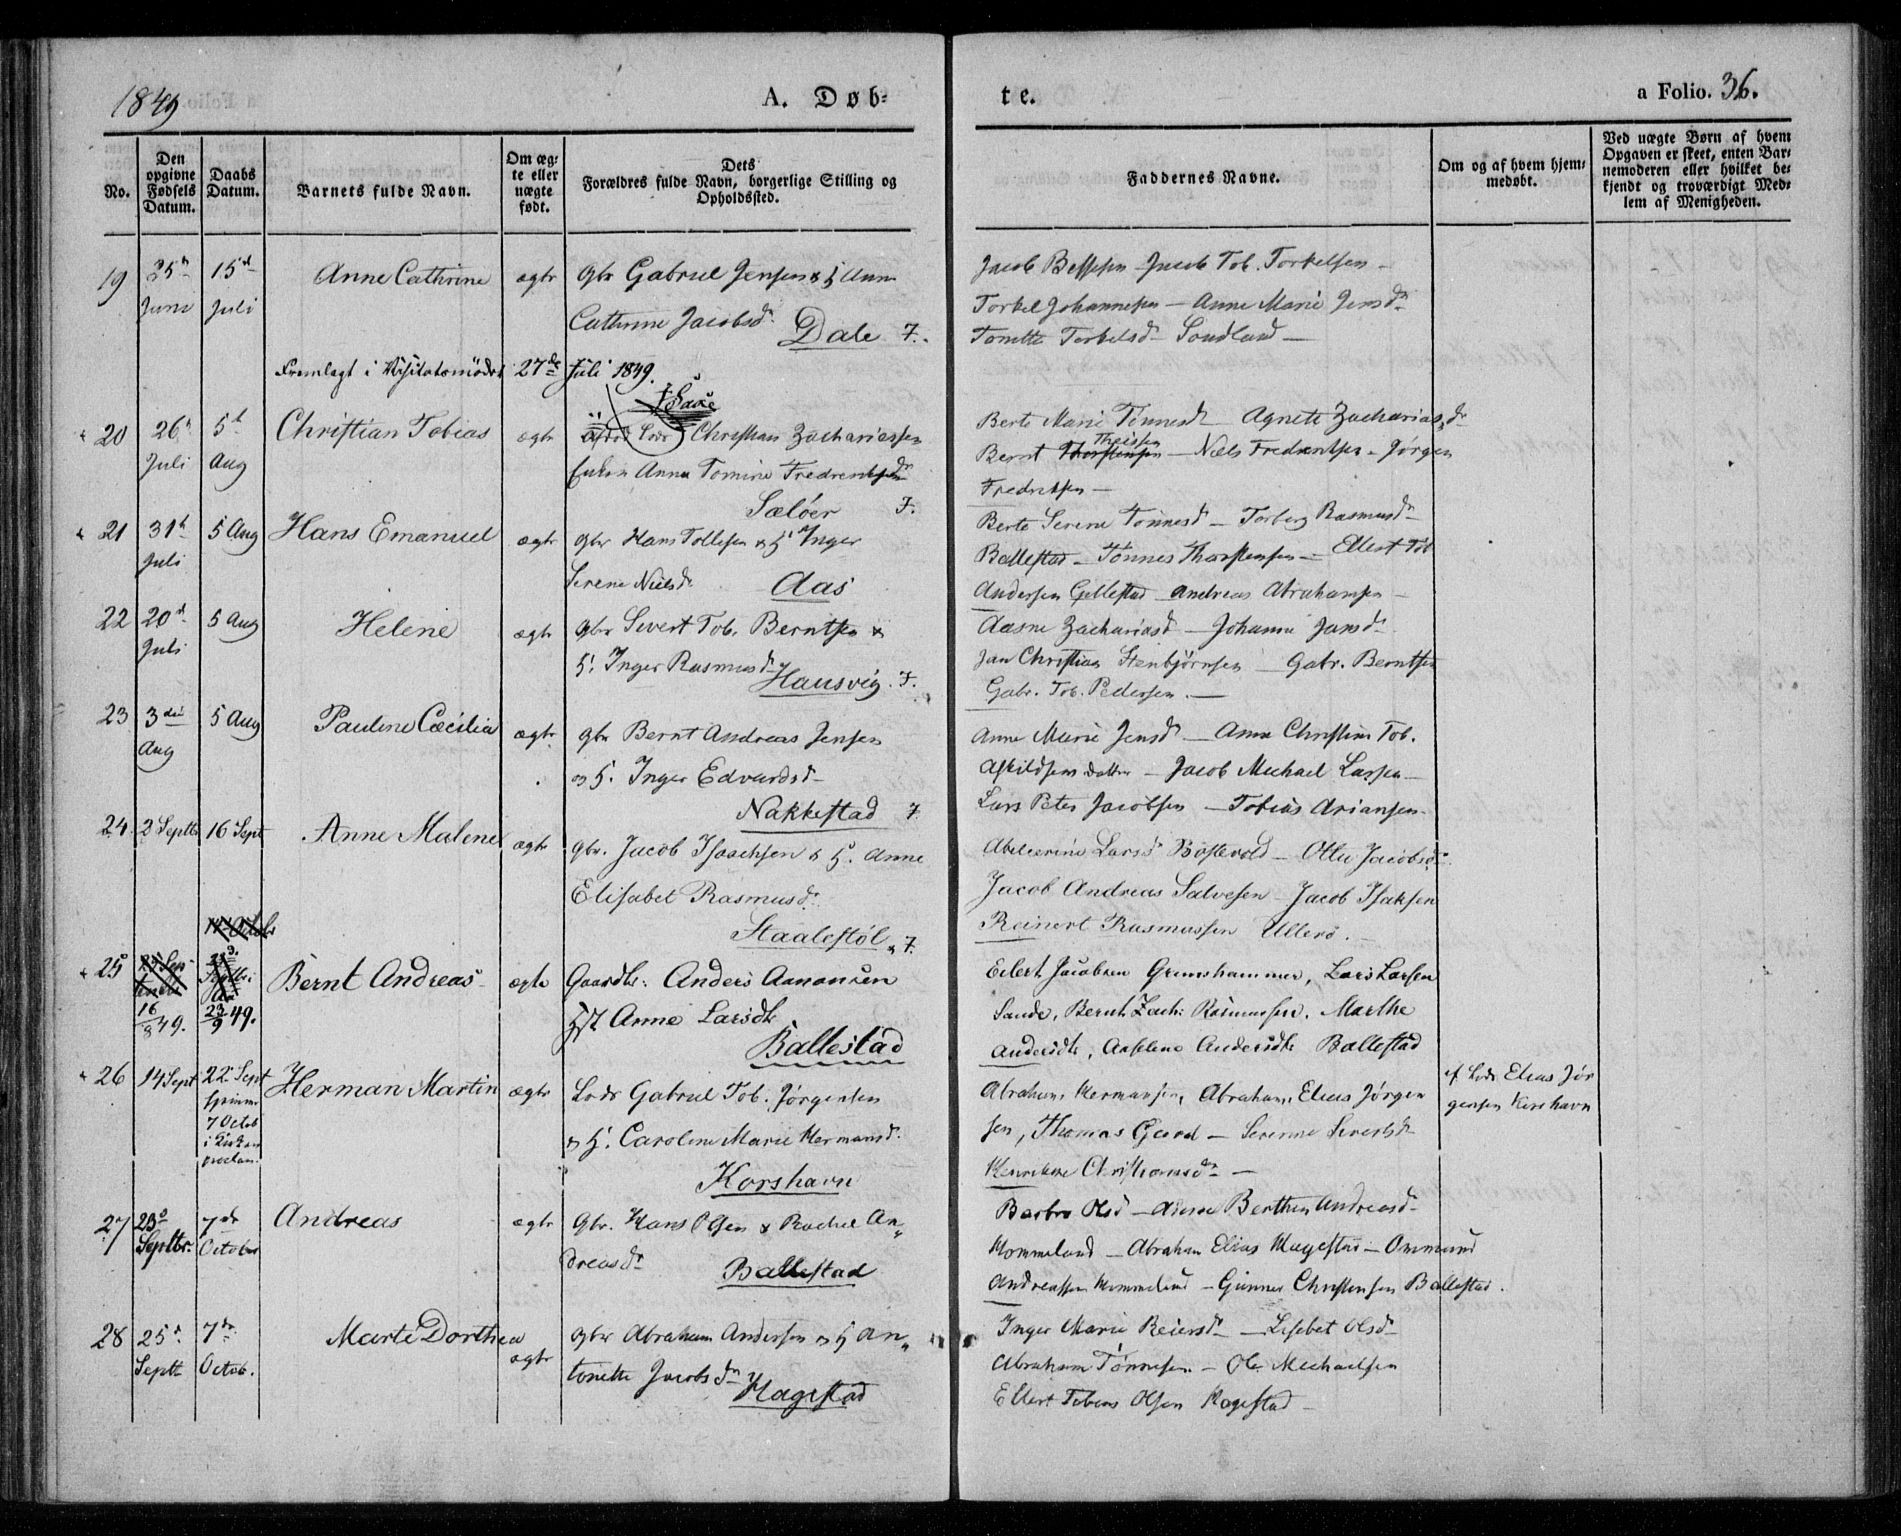 1849
A. Døb-
te.
a Folio. 36.
No.
Den opgivne Fødsels Datum.
Daabs Datum.
Barnets fulde Navn.
Om ægte eller uægte født.
Dets Forældres fulde Navn, borgerlige Stilling og Opholdssted.
Faddernes Navne.
Om og af hvem hjemmedøbt.
Ved uægte Børn af hvem Opgaven er skeet, enten Barnemoderen eller hvilket bekjendt og troværdigt Medlem af Menigheden.
19 25 Juni 15 Juli Anne Cathrine ægte Gbr Gabriel Jensen & H Anne
Cathrine Jacobsd. Dale F.
Jacob Jacob Tob. Torkelsen
Torkel Johannesen - Anne Marie Jensd
Tonette Torkelsd
Fremlagt i Visitatsmødet 27de Juli 1849.
20 26 Juli 5 Aug Christian Tobias ægte Christian Zachariassen
Anne Tomine
Sæløer F.
Berte Marie Tønnesd - Agnete Zachariasd
Bernt Theissen - Niels Fredriksen - Jørgen
Fredriksen -
21 31 Juli 5 Aug Hans Emanuel ægte Gbr Hans Tollefsen & H Inger
Serene Nielsd. Aas
Berte Serene Tønnesd - Torborg Rasmusd
Ballestad - Tønnes Thorstensen - Ellert Tob
Andersen Gillestad Andreas Abrahamsen -
22 20 Juli 5 Aug Helene ægte Gbr Sivert Tob. Berntsen &
H. Inger Rasmusd Hausvig. F.
Aasne Zachariasd - Johanne Jansd
Jan Christian Stenbjørnsen - Gabr. Berntsen
Gabr. Tob. Pedersen. -
23 3die Aug 5 Aug Pauline Cæcilia ægte Gbr Bernt Andreas Jensen
og H. Inger Edvardsd
Nakkestad F
Anne Marie Jensd - Anne Christine Tob.
Askildsens datter - Jacob Michael Larsen -
Lars Peter Jacobsen - Tobias Ariansen.
24 2 Septbr 16 Sept Anne Malene ægte Gbr. Jacob Isachsen & H. Anne
Elisabet Rasmusd.
Staalestøl F.
Abelcerine Larsd - Jacobsd.
Jacob Andreas Salvesen - Jacob Isaksen
Reinert Rasmussen Ullerø. -
25 16/8 49. 23/9 49. Bernt Andreas ægte Gaardbr. Anders Aanonsen
Hst Anne Larsdtr.
Ballestad
Eilert Jacobsen Grimshammer, Lars Larsen
Sande, Bernt Zach: Rasmussen. Marthe
Andersdtr, Aaselene Andersdtr Ballestad
26 14 Sept 22 Sept Herman Martin ægte Lods Gabriel Tob. Jørgensen
7 Octob
i Kirken
& H. Caroline Marie Hermansd.
Korshavn
Abraham Hermansen, Abraham, Elias Jørgen
sen, Thomas Gjerd - Serenne Sivertsd
Henrikke Christiansd -
af Lods Elias Jør
gensen Korshavn
27 23 Septbr. 7de October Andreas ægte Gbr. Hans Olsen & Rachel An„
dreasd Ballestad
Barbro Olsd - Berthea Andreasd
Hommeland - Abraham Elias Hagestad - Ommund
Andreassen Hommeland - Gunner Christensen Ballestad.
28 25 Septbr 7de Octob. Marte Dorthea ægte Gbr Abraham Andersen og H An„
tonette Jacobsd Hagestad
Inger Marie Reiersd - Lisebet Olsd
Abraham Tønnesen - Ole Michaelsen
Ellert Tobias Olsen Hagestad -